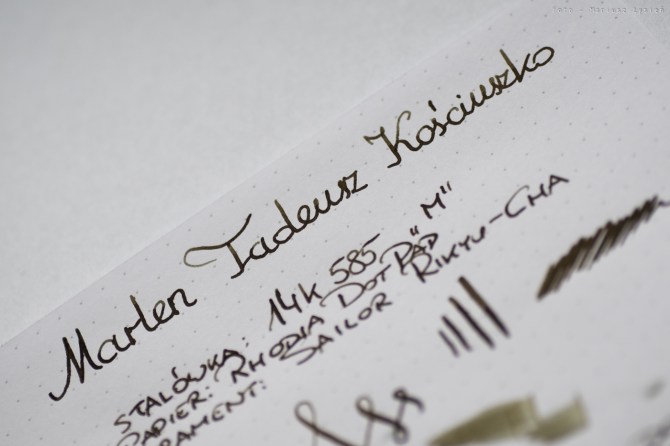 Marlen Tadeusz Kościuszko
STALÓWKA: 14K 585 "M"
PAPIER: RHODIA DOTPAD
RAMENT: SAILOR RIKYU-CHA